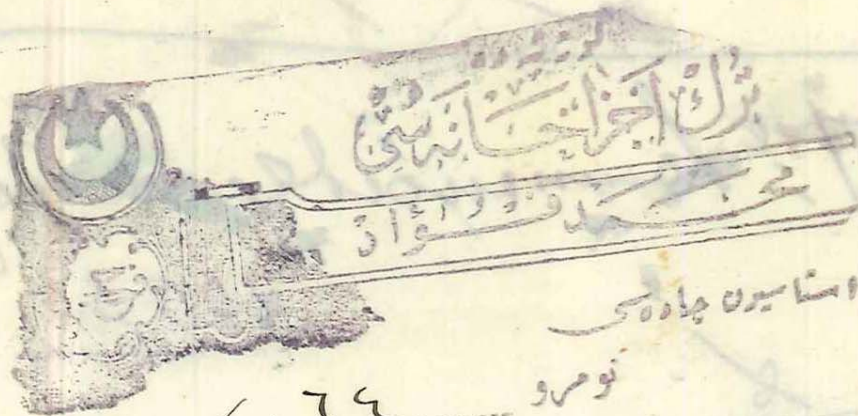 تورك اجزاخانه سی
محمد فؤاد
استاسیون جاده سی
نومرو
٦٤